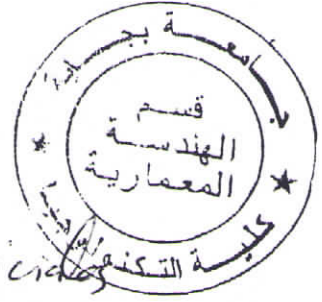 جامعة بجاية
قسم
الهندسة
المعمارية
كلية التكنولوجيا